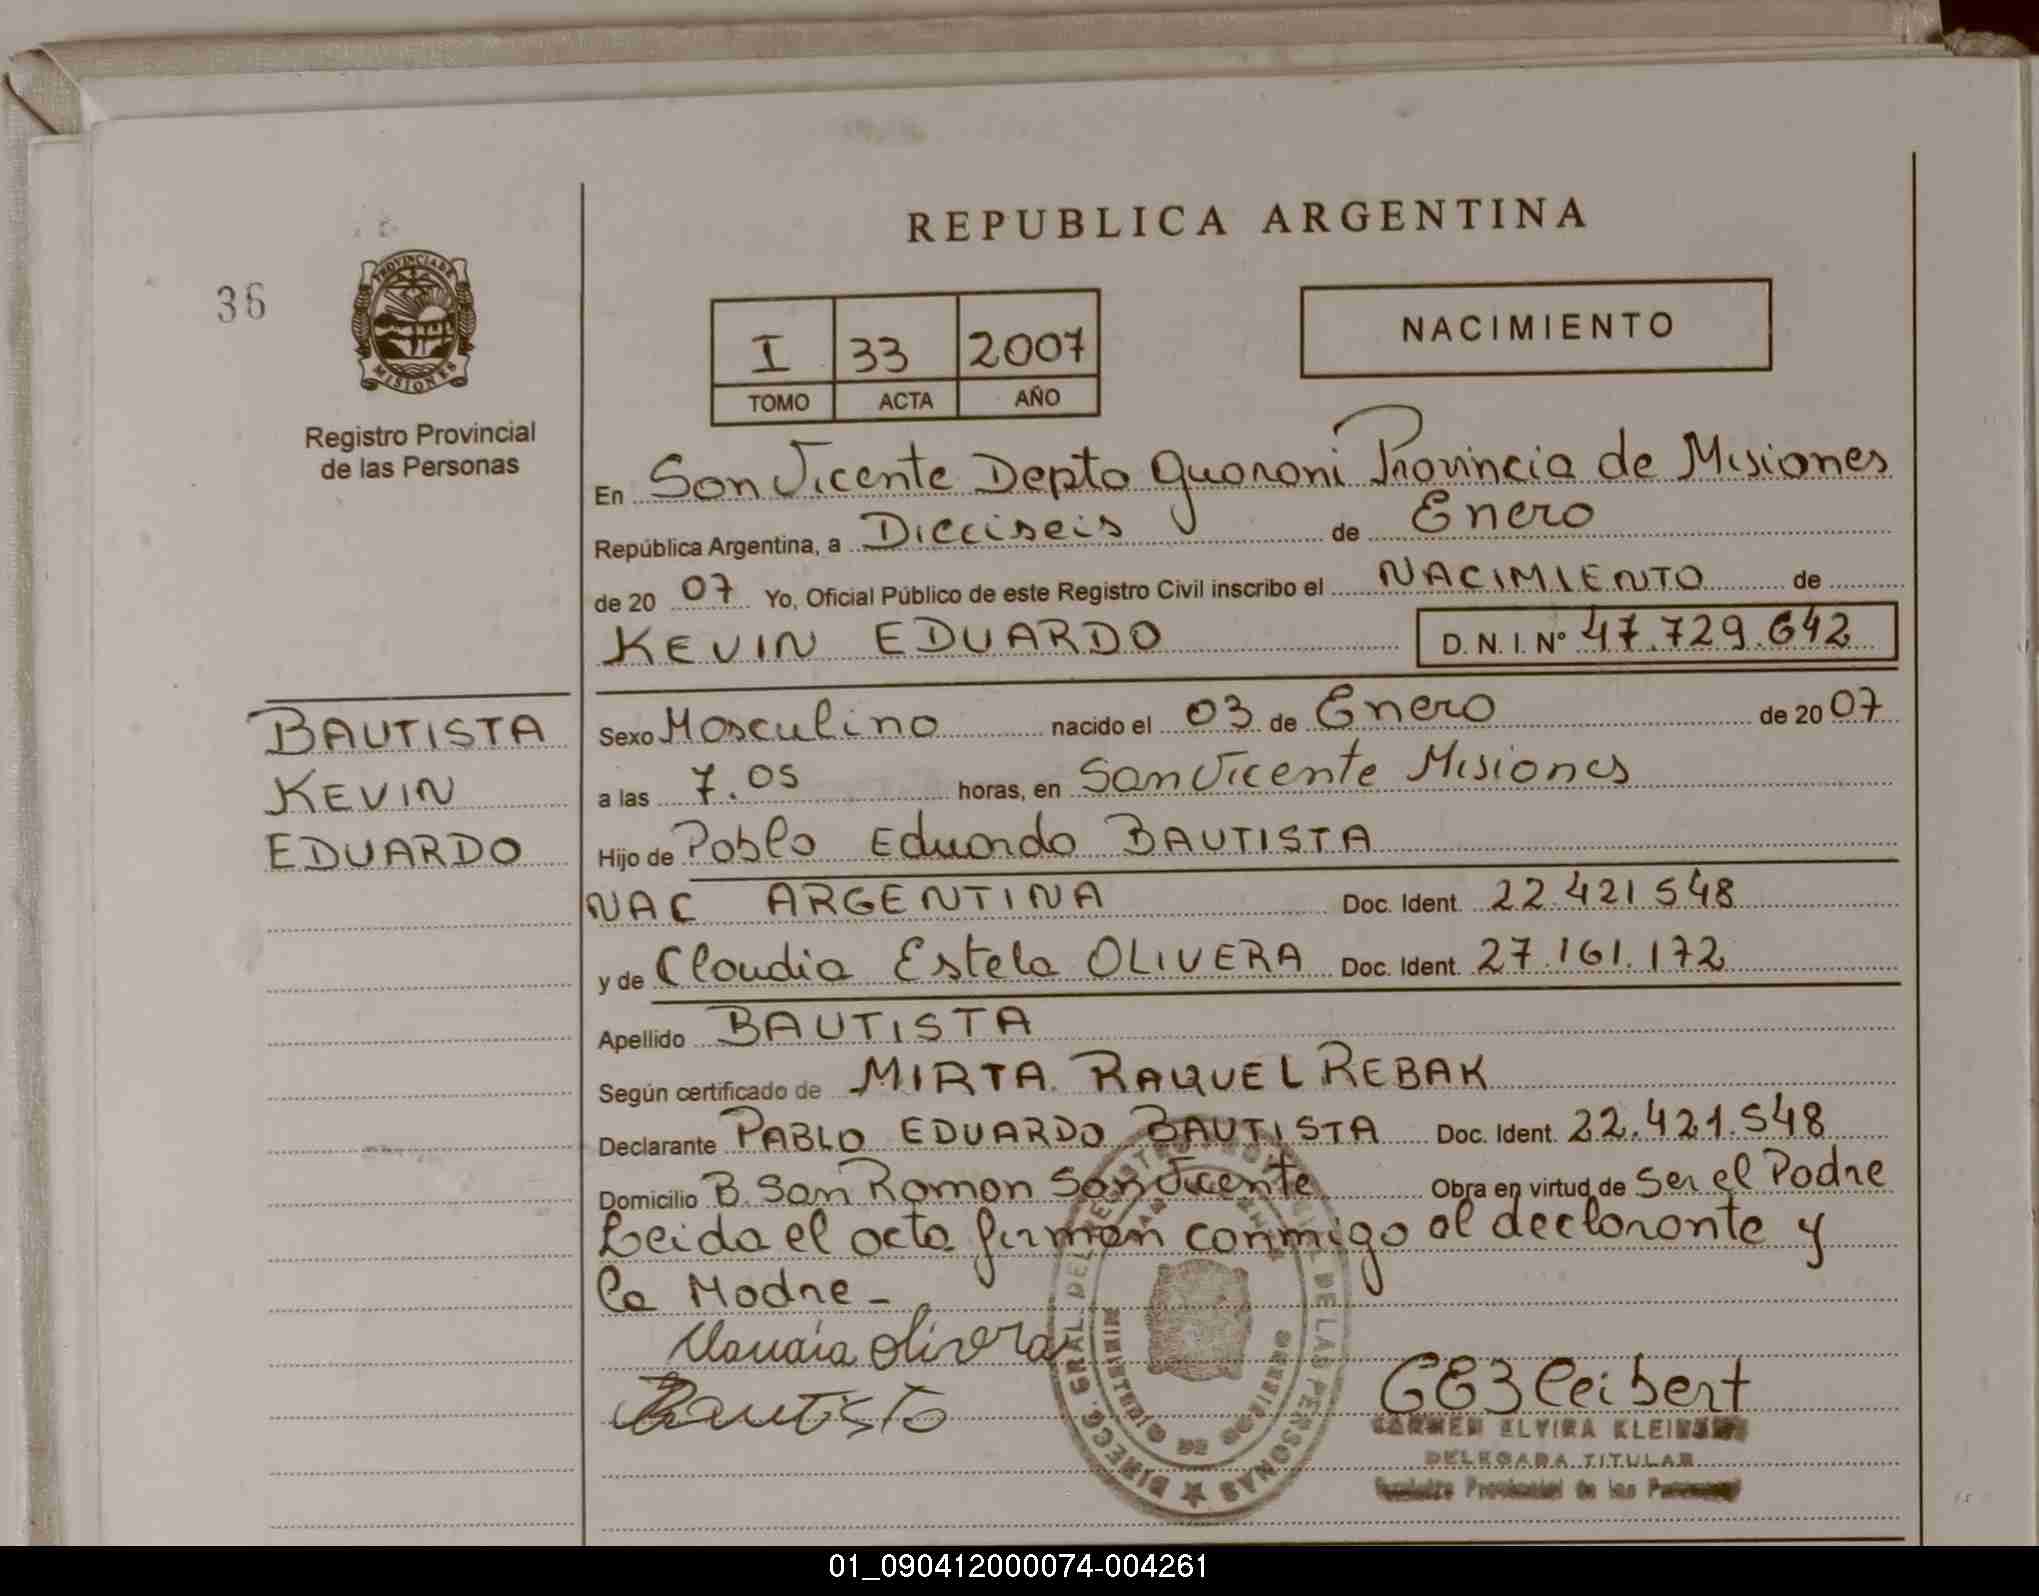 REPUBLICA ARGENTINA
36
PROVINCIA DE
MISIONES
Registro Provincial
de las Personas
I 33 2007
TOMO ACTA AÑO
NACIMIENTO
En San Vicente Depto Guarani Provincia de Misiones
República Argentina, a Dieciseis de Enero
de 20 07 Yo, Oficial Público de este Registro Civil inscribo el NACIMIENTO de
KEVIN EDUARDO D. N. I. Nº 47.729.642
BAUTISTA
KEVIN
EDUARDO
Sexo Masculino nacido el 03 de Enero de 20 07
a las 7.05 horas, en San Vicente Misiones
Hijo de Pablo Eduardo BAUTISTA
NAC ARGENTINA Doc. Ident. 22.421 548
y de Claudia Estela OLIVERA Doc. Ident. 27.161.172
Apellido BAUTISTA
Según certificado de MIRTA RAQUEL REBAK
Declarante PABLO EDUARDO BAUTISTA Doc. Ident. 22.421.548
Domicilio B. San Ramon San Vicente Obra en virtud de Ser el Padre
Leida el acta firman conmigo el declarante y
la Madre -
Olivera
Bautista
DIRECC. GRAL. DEL REGISTRO PROVINCIAL DE LAS PERSONAS
CARMEN ELVIRA
DELEGADA TITULAR
Registro Provincial de las Personas
01_090412000074-004261